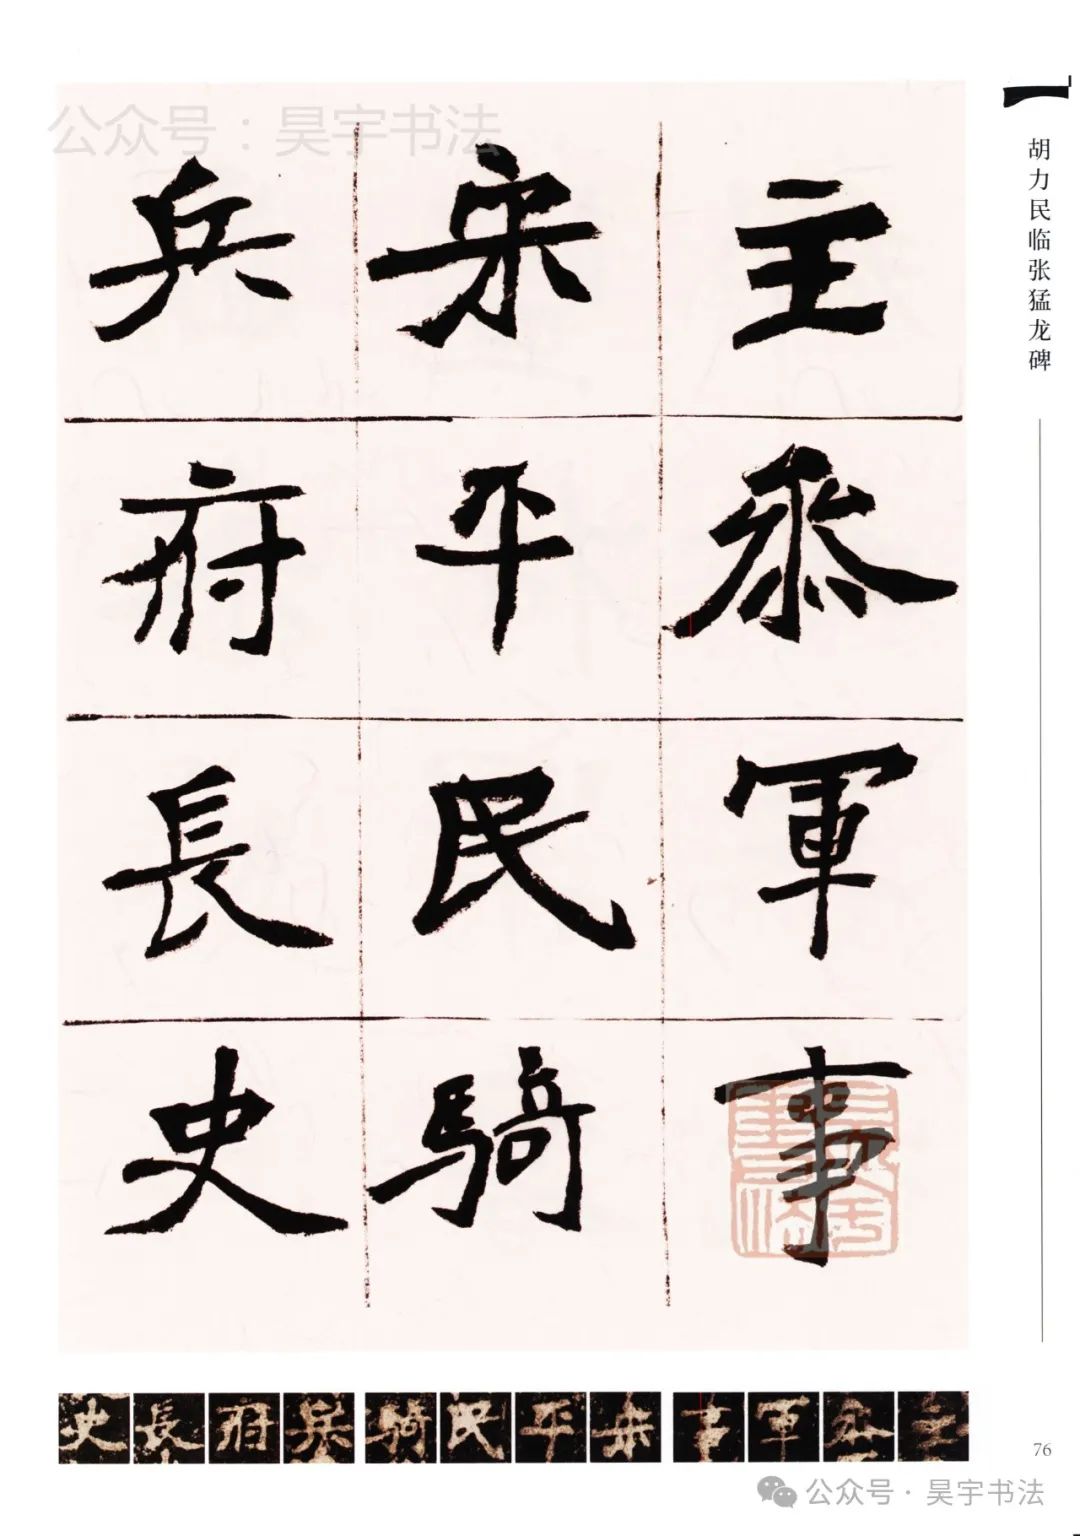 公众号：昊宇书法
胡力民临张猛龙碑
主叅軍事
宋平民騎
兵府長史
主叅軍事宋平民騎兵府長史
76
公众号·昊宇书法